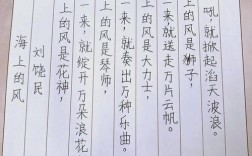 海上的风
刘饶民
上的风是花神，
一来，就绽开万朵浪花
上的风是琴师，
一来，就奏出万种乐曲。
上的风是大力士，
一来，就送走万片云帆。
上的风是狮子，
吼，就掀起滔天波浪。